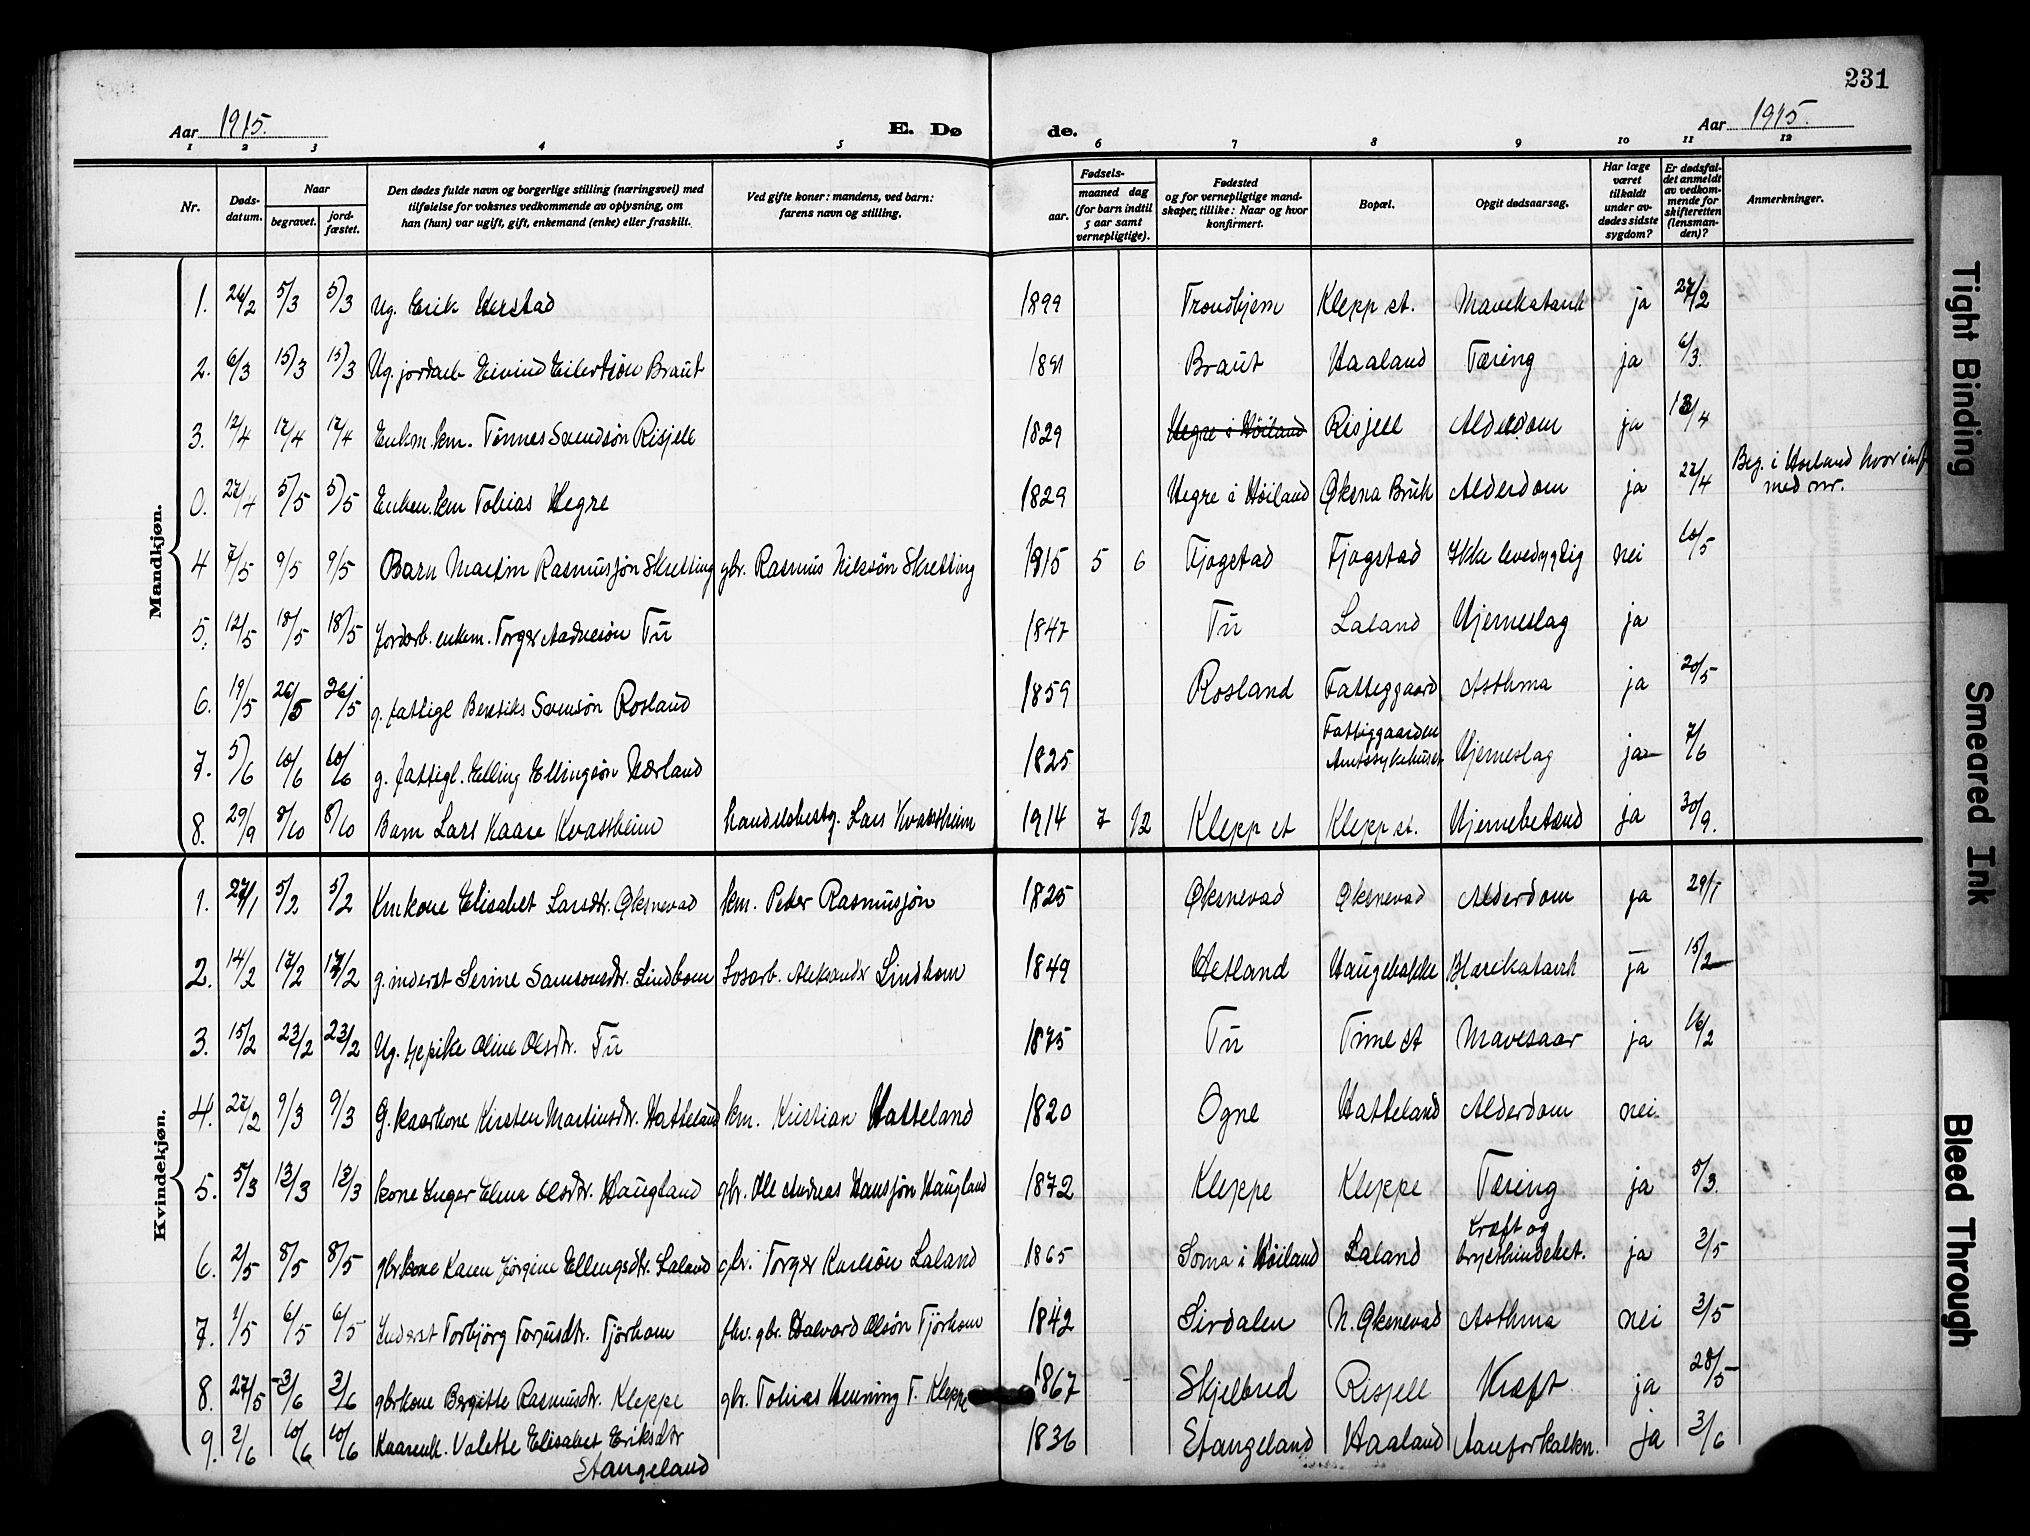 231
Aar 1915. E. Dø de. Aar 1915.
1 2 3 4 5 6 7 8 9 10 11 12
Nr. Døds-datum. Naar begravet. jord-fæstet. Den dødes fulde navn og borgerlige stilling (næringsvei) med tilføielse for voksnes vedkommende av oplysning, om han (hun) var ugift, gift, enkemand (enke) eller fraskilt. Ved gifte koner: mandens, ved barn: farens navn og stilling. Fødsels- aar. maaned dag (for barn indtil 5 aar samt vernepligtige). Fødested og for vernepligtige mand-skaper, tillike: Naar og hvor konfirmert. Bopæl. Opgit dødsaarsag. Har læge været tilkaldt under av-dødes sidste sygdom? Er dødsfal-det anmeldt av vedkom-mende for skifteretten (lensman-den)? Anmerkninger.
Mandkjøn.
1. 26/2 5/3 5/3 Ug. Erik Herstad 1899 Trondhjem Klepp st. Mavekatarrh ja 27/2
2. 6/3 15/3 15/3 Ug. jordarb. Eivind Eilertsøn Braut 1891 Braut Haaland Tæring ja 6/3.
3. 12/4 17/4 17/4 Enkm. km. Tønnes Svendsøn Risjell 1829 Hegre i Høiland Risjell Alderdom ja 13/4
0. 27/4 5/5 5/5 Enkem. km Tobias Hegre 1829 Hegre i Høiland Øksna Bruk Alderdom ja 27/4 Beg. i Høiland hvor indf. med nr.
4 7/5 9/5 9/5 Barn Martin Rasmussøn Skretting gbr. Rasmus Nilsøn Skretting 1915 5 6 Fjogstad Fjogstad Ikke levedygtig nei 10/5
5. 12/5 18/5 18/5 Jordarb. enkm. Torger Aadnesøn Tu 1847 Tu Laland Hjerneslag ja
6. 19/5 26/5 26/5 g. fattigl Svensøn Rosland 1859 Rosland Fattiggaard Asthma ja 20/5
7. 5/6 10/6 10/6 g. fattigl. Elling Ellingsøn Nærland 1825 Fattiggaarden Amtssykehuset Hjerneslag ja 7/6
8. 29/9 8/10 8/10 Barn Lars Kaare Kvastheim handelsbest. Lars Kvastheim 1914 7 12 Klepp st Klepp st. Hjernebetænd ja 30/9.
Kvindekjøn.
1. 27/1 5/2 5/2 Kmkone Elisabet Larsdtr. Øksnevad km. Peder Rasmussøn 1825 Øksnevad Øksnevad Alderdom ja 29/1
2. 14/2 17/2 17/2 g. inderst Serine Samsonsdtr. Lindbom Losarb. Aleksander Lindbom 1849 Hetland Haugebakke Blærekatarrh ja 15/2
3. 15/2 23/2 23/2 Ug. tjpike Oline Olsdtr. Tu 1875 Tu Time st Mavesaar ja 16/2
4. 27/2 9/3 9/3 G. kaarkone Kirsten Martinsdtr. Hatteland km. Kristian Hatteland 1820 Ogne Hatteland Alderdom nei
5. 5/3 13/3 13/3 kone Inger Elene Olsdtr. Haugland gbr. Ole Andreas Hansøn Haugland 1872 Kleppe Kleppe Tæring ja 5/3.
6. 2/5 8/5 8/5 gbrkone Karen Jørgine Ellingsdtr. Laland gbr. Torger Karlsøn Laland 1865 Soma i Høiland Laland Kræft og brysthindebet. ja 3/5
7. 1/5 6/5 6/5 Inderst Torbjørg Torjusdtr. Tjørhom fhv. gbr. Halvard Olsøn Tjørhom 1842 Sirdalen N. Øksnevad Asthma nei 3/5
8. 27/5 3/6 3/6 gbrkone Bergitte Rasmusdtr. Kleppe gbr. Tobias Henning T. Kleppe 1867 Skjelbred Risjell Kræft ja 28/5
9. 2/6 10/6 10/6 Kaarenk. Valette Elisabet Eriksdtr Stangeland 1836 Stangeland Haaland Aareforkalkn. ja 3/6
Tight Binding
Smeared Ink
Bleed Through